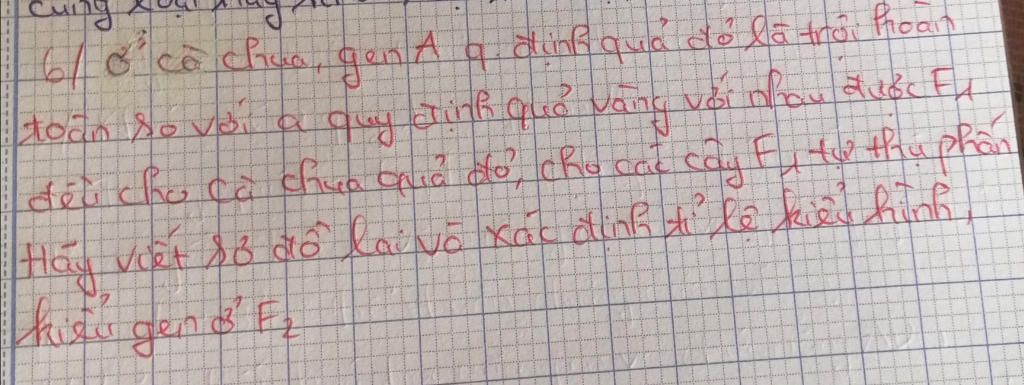 6/ Ở cà chua, gen A q. định quả đỏ là trội hoàn
toàn so với a quy định quả vàng với nhau được F1
đều cho cà chua quả đỏ, cho các cây F1 tự thụ phấn
Hãy viết sơ đồ lai và xác định tỉ lệ kiểu hình,
kiểu gen ở F2